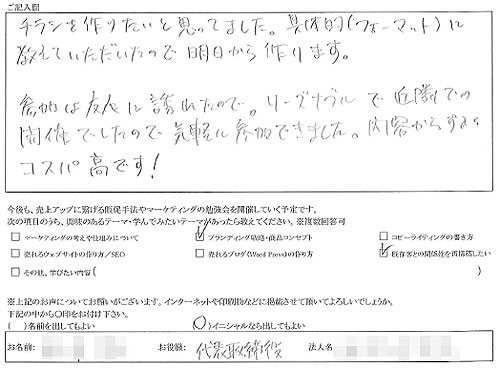 ご記入欄
チラシを作りたいと思ってました。具体的(フォーマット)に
教えていただいたので明日から作ります。
参加は友人に誘われたので。リーズナブルで近隣での
開催でしたので気軽に参加できました。内容からすると
コスパ高です!
今後も、売上アップに繋げる販促手法やマーケティングの勉強会を開催していく予定です。
次の項目のうち、興味のあるテーマ・学んでみたいテーマがあったら教えてください。※複数回答可
□ マーケティングの考えや仕組みについて ☑ ブランディング戦略・商品コンセプト □ コピーライティングの書き方
□ 売れるウェブサイトの作り方/SEO □ 売れるブログ(Word Press)の作り方 ☑ 既存客との関係性を再構築したい
□ その他、学びたい内容( )
※上記のお声についてお願いがございます。インターネットや印刷物などに掲載させて頂いてよろしいでしょうか。
下記の中から○印をお付け下さい。
( )名前を出してもよい (○)イニシャルなら出してもよい
お名前: お役職: 代表取締役 法人名